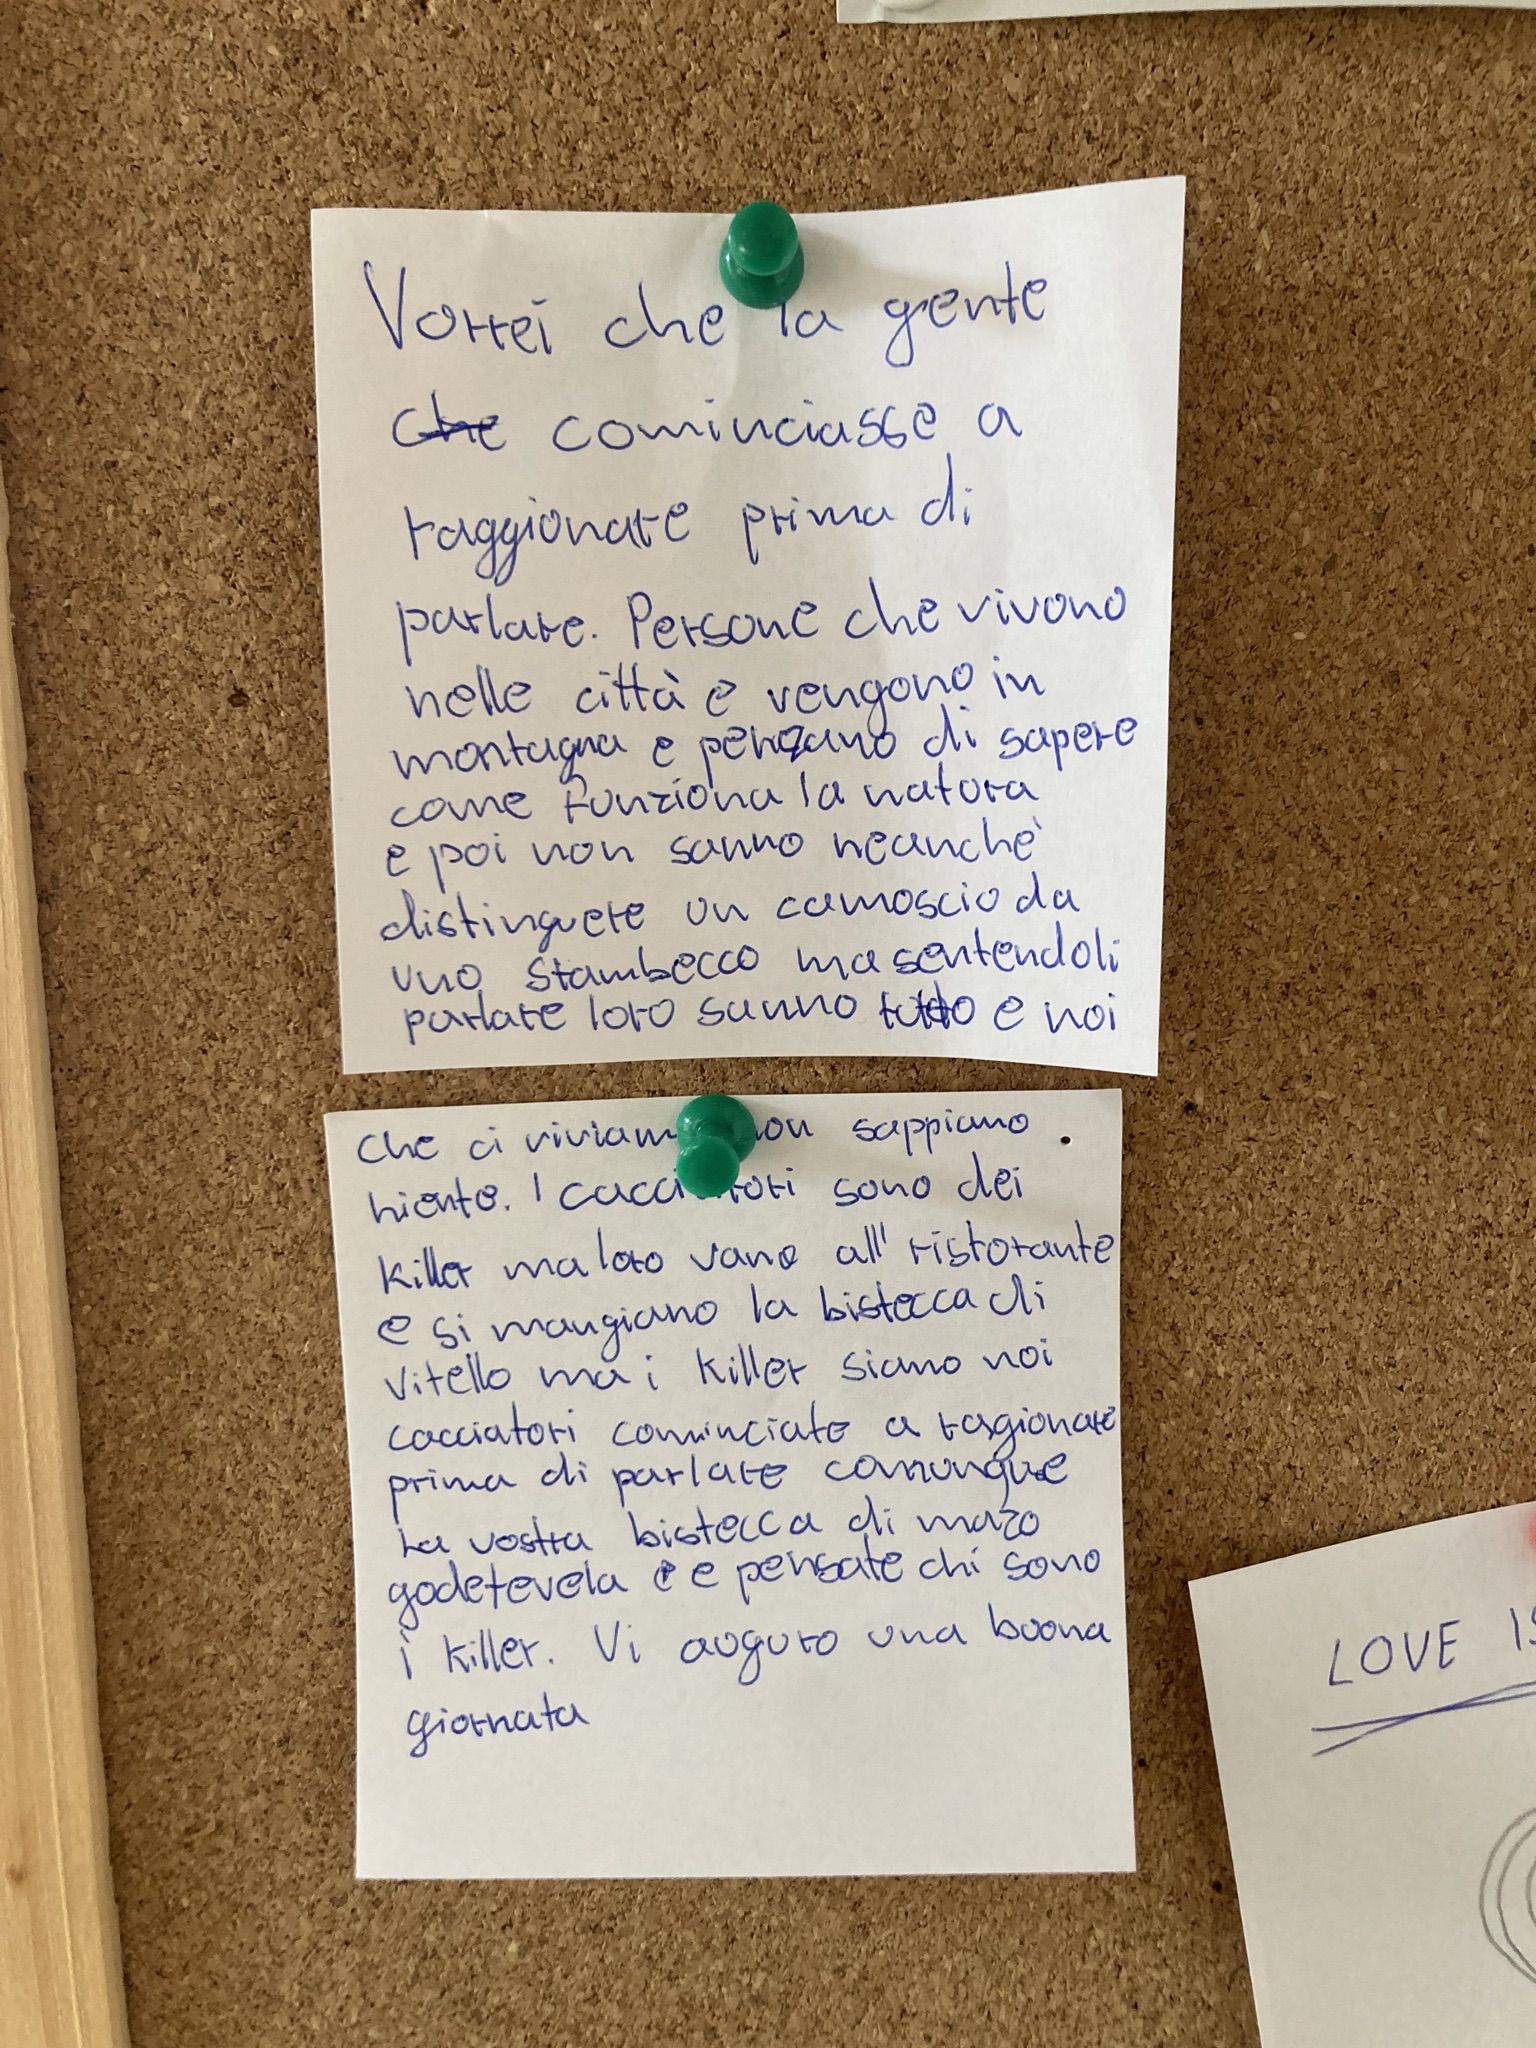 Vorrei che la gente
che cominciasse a
raggionare prima di
parlare. Persone che vivono
nelle città e vengono in
montagna e penzano di sapere
come funziona la natora
e poi non sanno neanchè
distinguere un camoscio da
uno stambecco ma sentendoli
parlare loro sanno tutto e noi
che ci viviamo non sappiano
niente. I cacciatori sono dei
killer ma loro vano all' ristorante
e si mangiano la bistecca di
vitello ma i killer siamo noi
cacciatori cominciate a ragionare
prima di parlare comunque
la vostra bistecca di mazo
godetevela e e pensate chi sono
i killer. Vi auguro una buona
giornata
LOVE IS